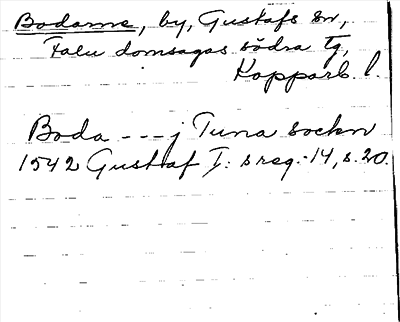 Bodarne, by, Gustafs sn,
Falu domsagas södra tg,
Kopparb. l.
Boda --- j Tuna sockn
1542 Gustaf I: s reg. 14, s. 20.